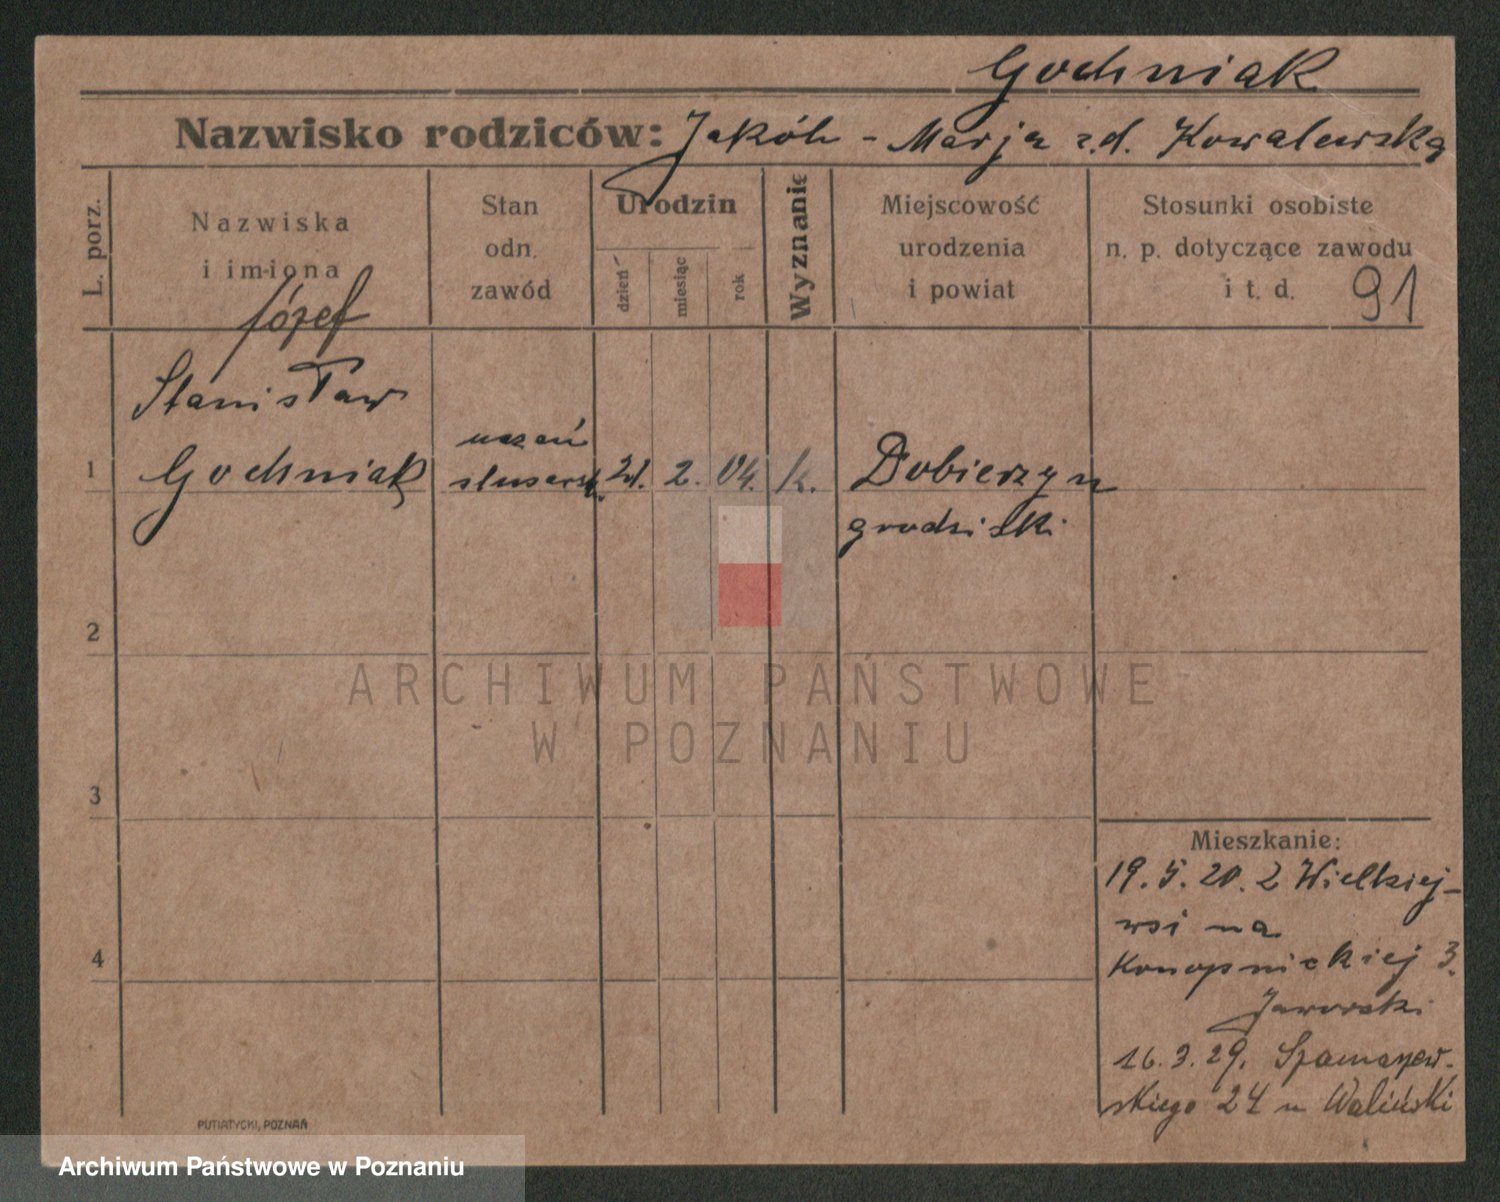 Gochniak
Nazwisko rodziców: Jakób - Marja z.d. Kowalewska
L. porz.
Nazwiska
i imiona
Stan
odn.
zawód
Urodzin
dzień
miesiąc
rok
Wyznanie
Miejscowość
urodzenia
i powiat
Stosunki osobiste
n. p. dotyczące zawodu
i t. d. 91
Józef
Stanisław
uczeń
1 Gochniak ślusarsk. 21. 2. 04. k. Dobierzyn
grodziski
2
ARCHIWUM PAŃSTWOWE
W POZNANIU
3
Mieszkanie:
19. 5. 20. z Wielkiej-
wsi na
4
Konopnickiej 3.
Jaworski
16. 3. 29. Szamarzew-
skiego 24 u Waliński
PUTIATYCKI, POZNAŃ
Archiwum Państwowe w Poznaniu